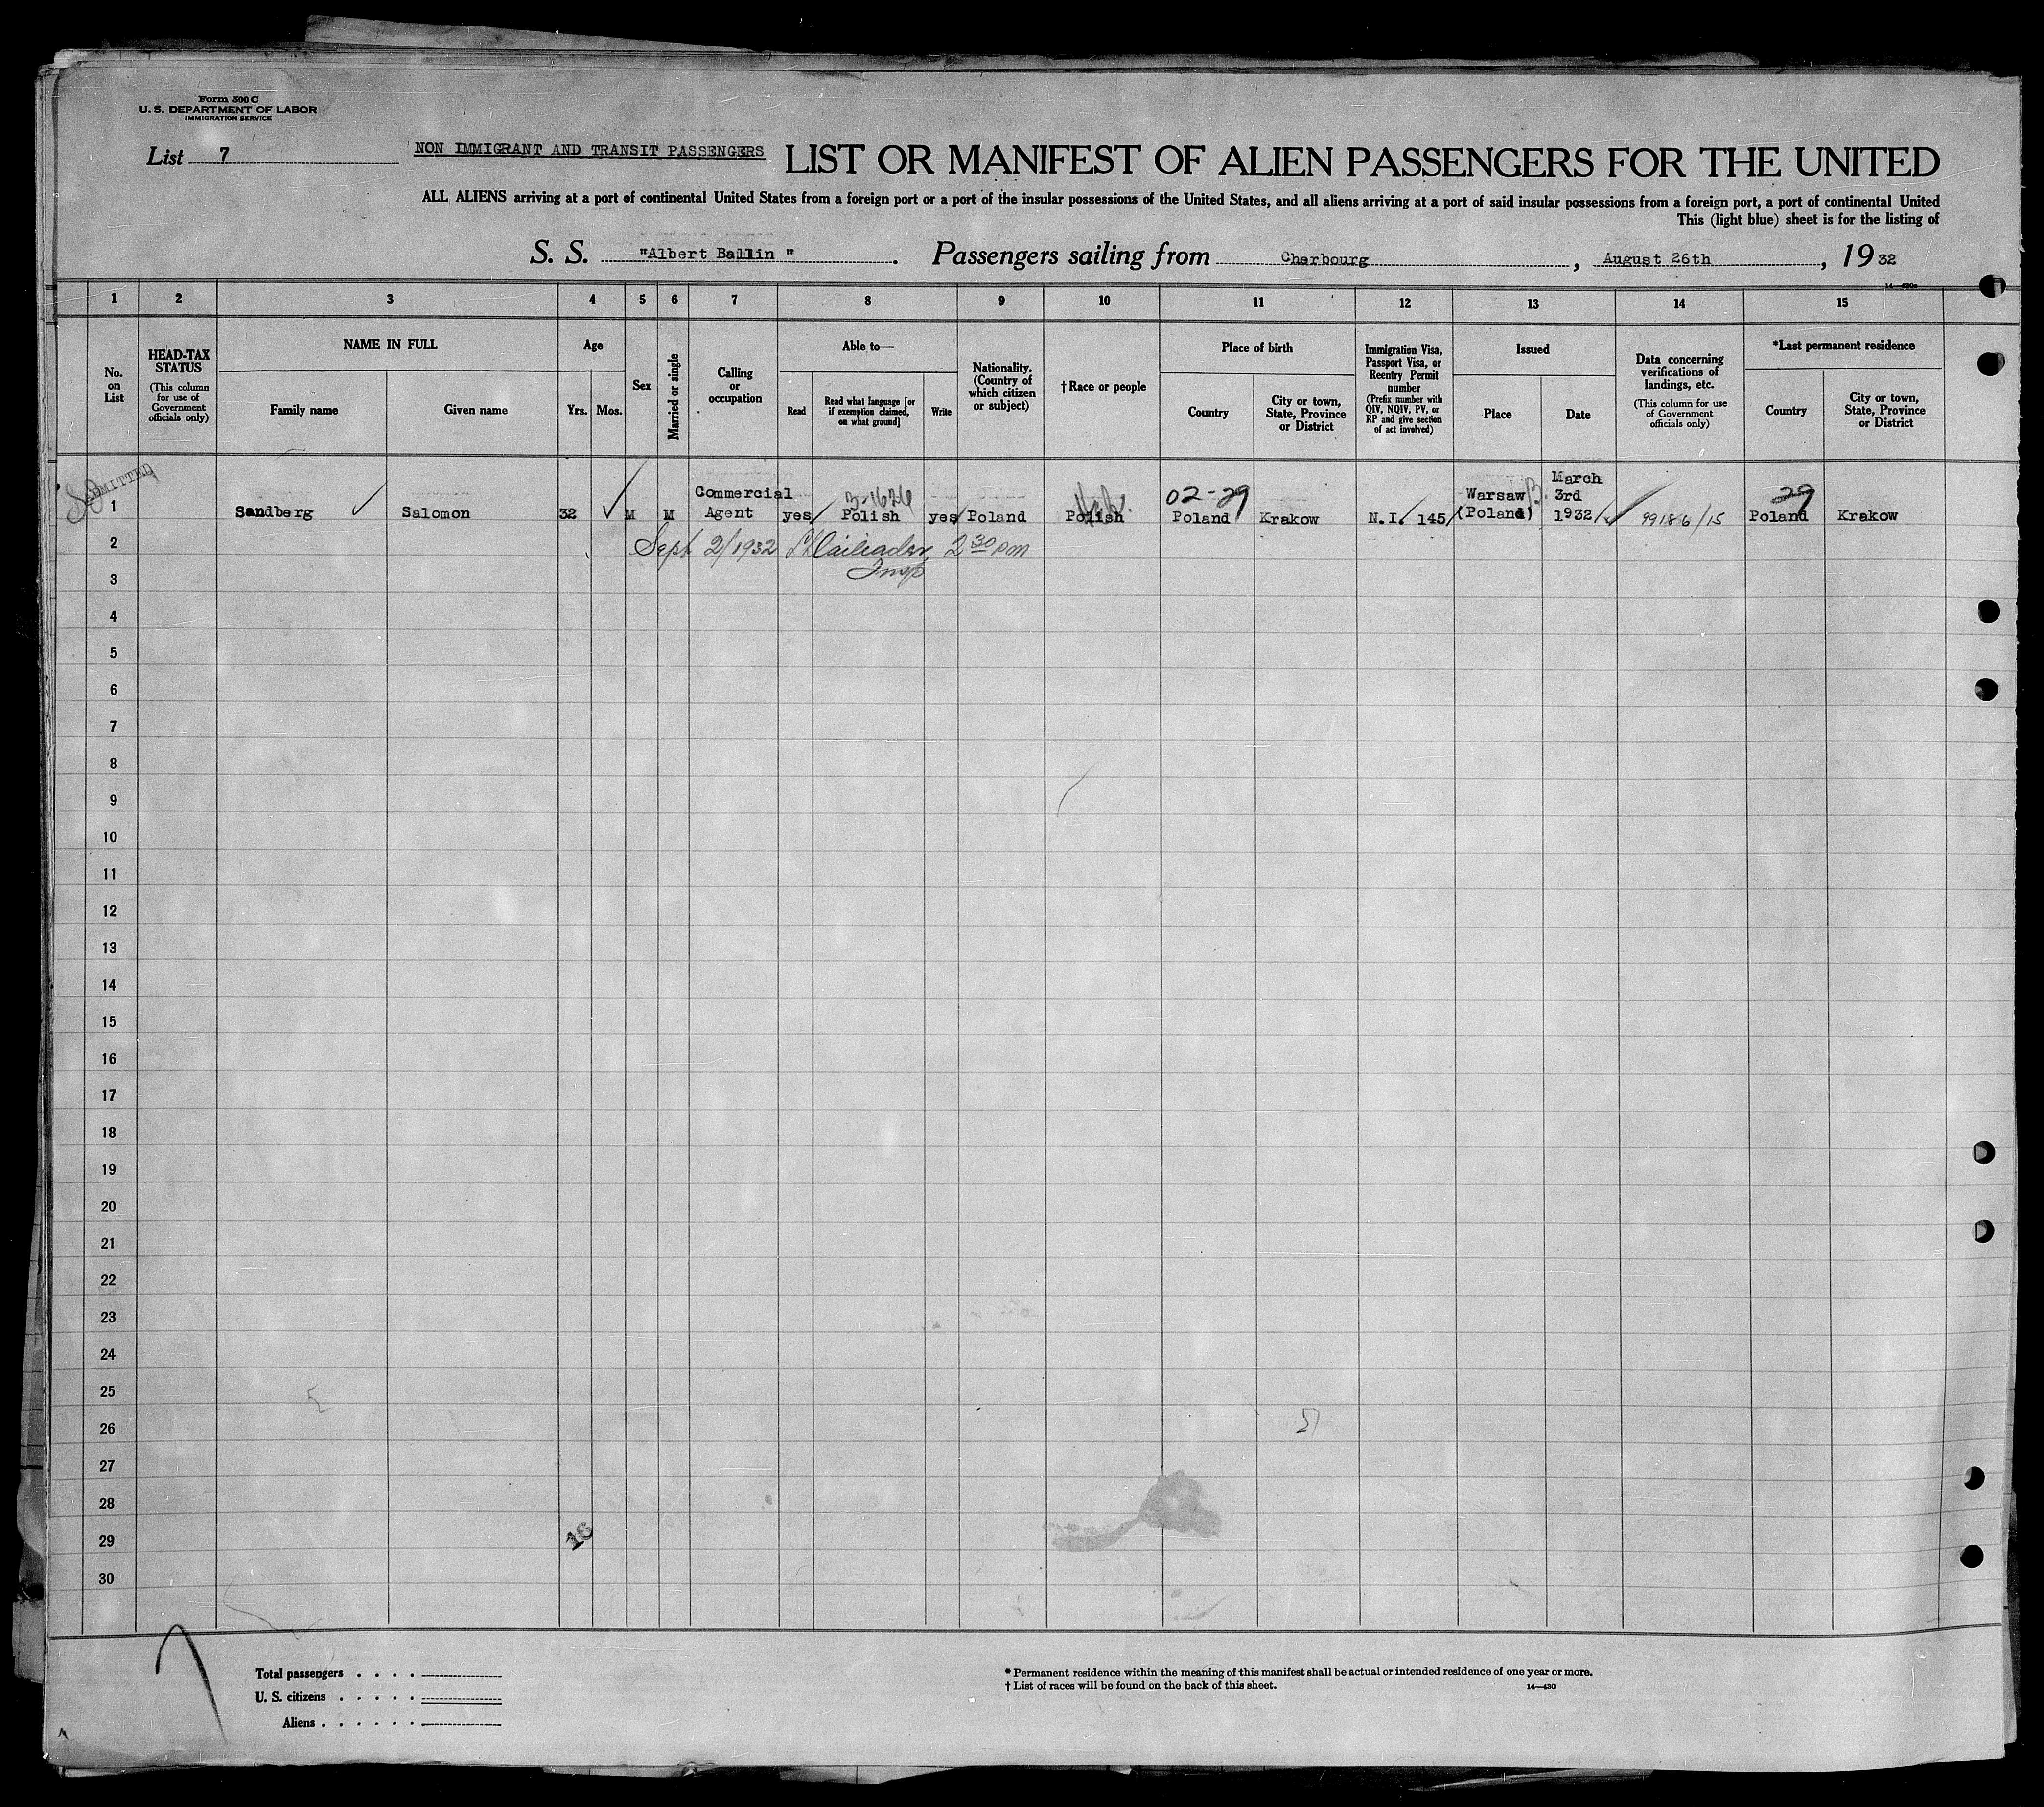 Form 500 C
U. S. DEPARTMENT OF LABOR
IMMIGRATION SERVICE
List 7
NON IMMIGRANT AND TRANSIT PASSENGERS LIST OR MANIFEST OF ALIEN PASSENGERS FOR THE UNITED
ALL ALIENS arriving at a port of continental United States from a foreign port or a port of the insular possessions of the United States, and all aliens arriving at a port of said insular possessions from a foreign port, a port of continental United
This (light blue) sheet is for the listing of
S. S. "Albert Ballin". Passengers sailing from Cherbourg, August 26th, 1932
14—430a
1 2 3 4 5 6 7 8 9 10 11 12 13 14 15
No. on List
HEAD-TAX STATUS
(This column for use of Government officials only)
NAME IN FULL
Family name
Given name
Age
Yrs.
Mos.
Sex
Married or single
Calling or occupation
Able to—
Read
Read what language [or if exemption claimed, on what ground]
Write
Nationality. (Country of which citizen or subject)
†Race or people
Place of birth
Country
City or town, State, Province or District
Immigration Visa, Passport Visa, or Reentry Permit number
(Prefix number with QIV, NQIV, PV, or RP and give section of act involved)
Issued
Place
Date
Data concerning verifications of landings, etc.
(This column for use of Government officials only)
*Last permanent residence
Country
City or town, State, Province or District
ADMITTED
1 Sandberg Salomon 32 M M Commercial Agent yes 3-1626 Polish yes Poland Polish 02-29 Poland Krakow N.I. 145 Warsaw (Poland) March 3rd 1932 99186/15 29 Poland Krakow
2 Sept 2/1932 2 30 pm
3 Insp
4
5
6
7
8
9
10
11
12
13
14
15
16
17
18
19
20
21
22
23
24
25
26
27
28
29
30
7
Total passengers . . . .
U. S. citizens . . . . .
Aliens . . . . . .
* Permanent residence within the meaning of this manifest shall be actual or intended residence of one year or more.
† List of races will be found on the back of this sheet.
14—430